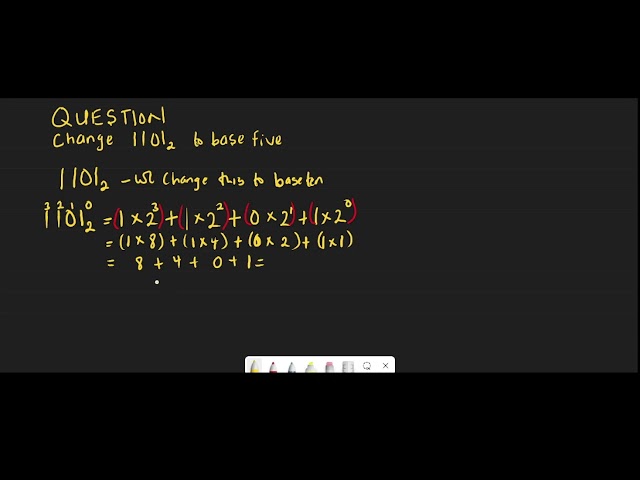 QUESTION
Change 1101₂ to base five
1101₂ - we change this to base ten
3 2 1 0
1101₂ = (1 × 2³) + (1 × 2²) + (0 × 2¹) + (1 × 2⁰)
= (1 × 8) + (1 × 4) + (0 × 2) + (1 × 1)
= 8 + 4 + 0 + 1 =